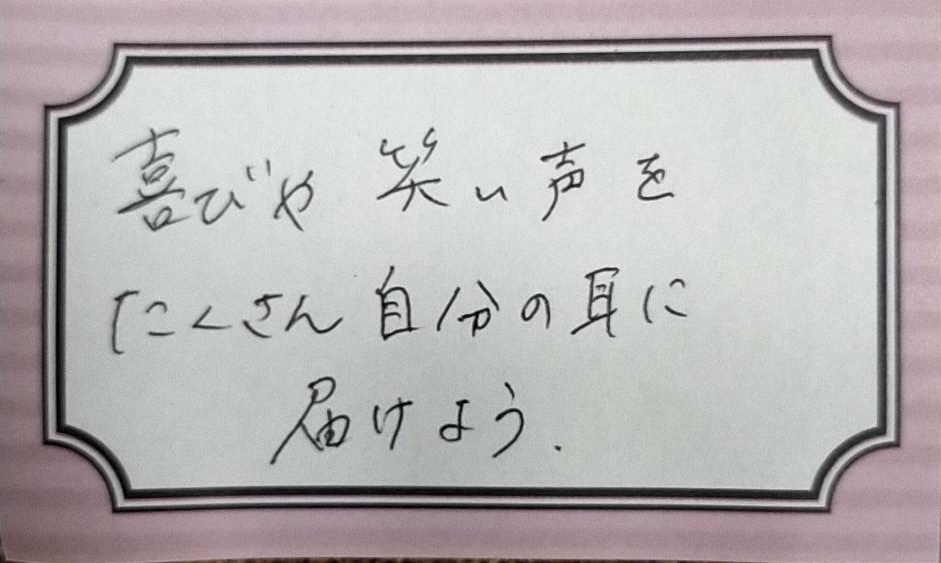 喜びや笑い声を
たくさん自分の耳に
届けよう.